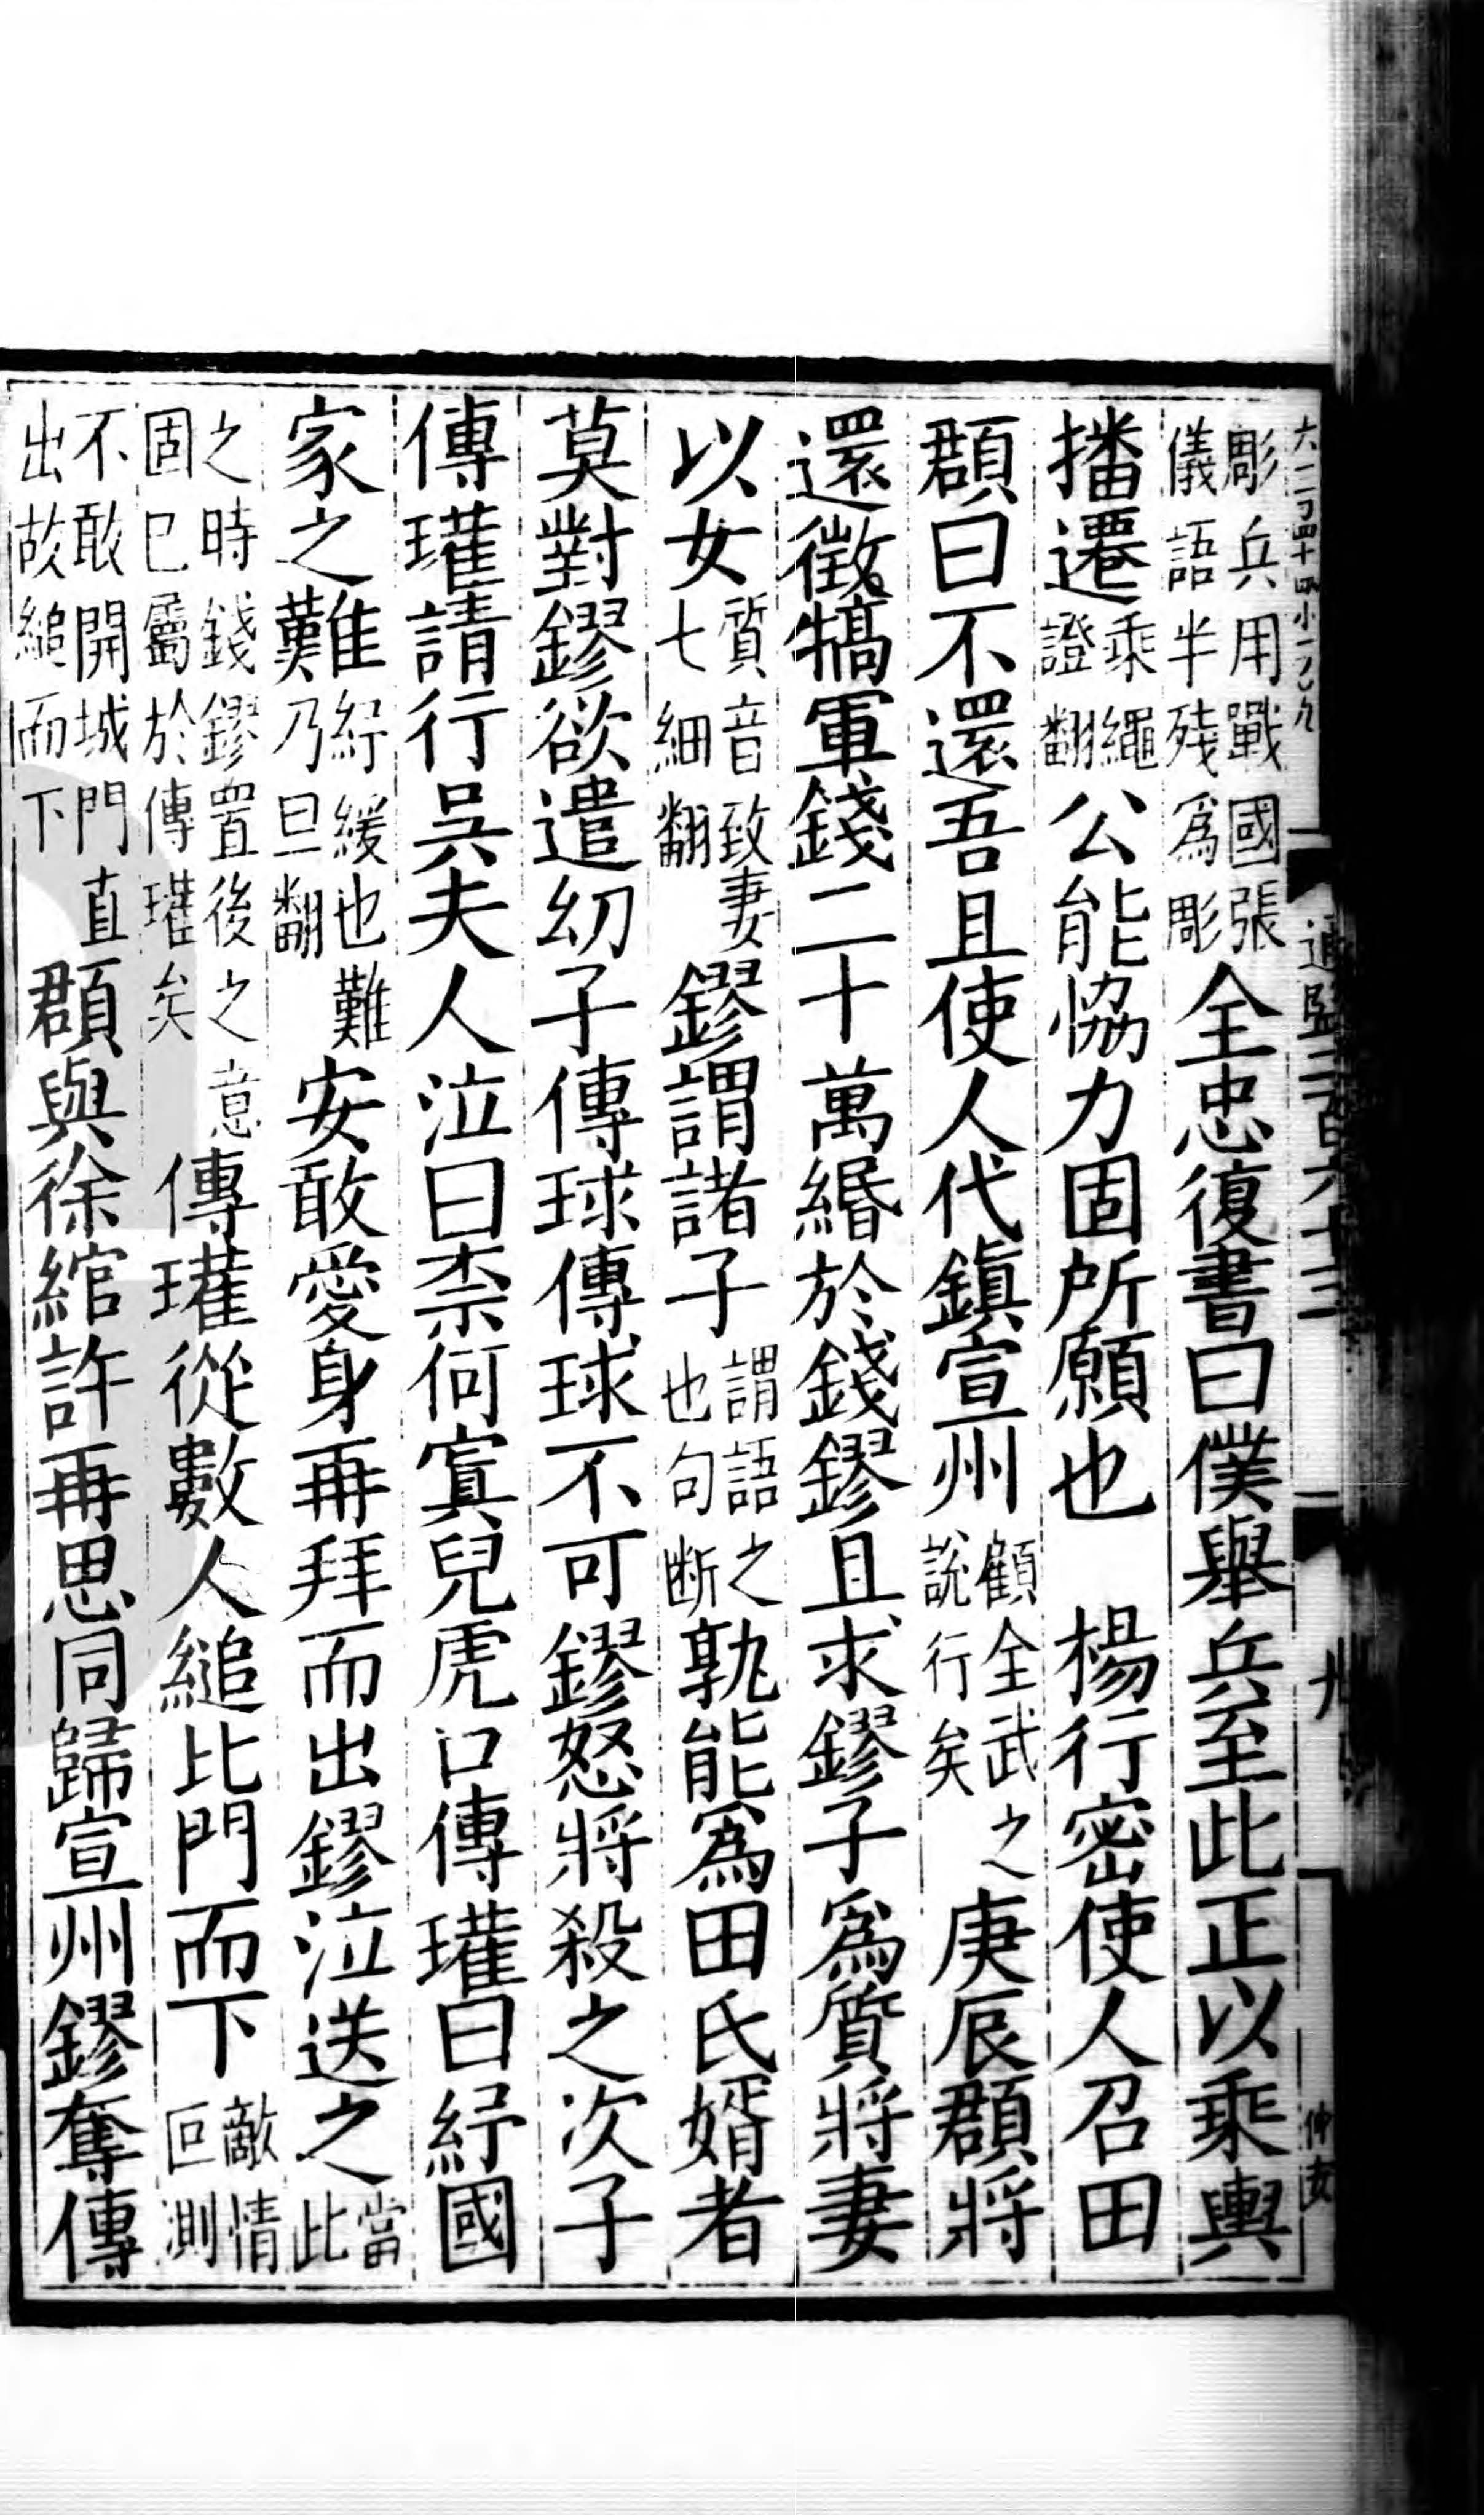 彫兵用戰國張
儀語半殘爲彫
全忠復書曰僕舉兵至此正以乘輿
播遷
乘繩
證翻
公能恊力固所願也 楊行密使人召田
頵曰不還吾且使人代鎮宣州
顧全武之
說行矣
庚辰頵將
還徵犒軍錢二十萬緡於錢鏐且求鏐子爲質將妻
以女
質音致妻
七細翻
鏐謂諸子
謂語之
也句断
孰能爲田氏婿者
莫對鏐欲遣幼子傳球傳球不可鏐怒將殺之次子
傳瓘請行吳夫人泣曰柰何寘兒虎口傳瓘曰紓國
家之難
紓緩也難
乃旦翻
安敢愛身再拜而出鏐泣送之
當
此
之時錢鏐置後之意
固已屬於傳瓘矣
傳瓘從數人縋北門而下
敵情
叵測
不敢開城門直
出故縋而下
頵與徐綰許再思同歸宣州鏐奪傳